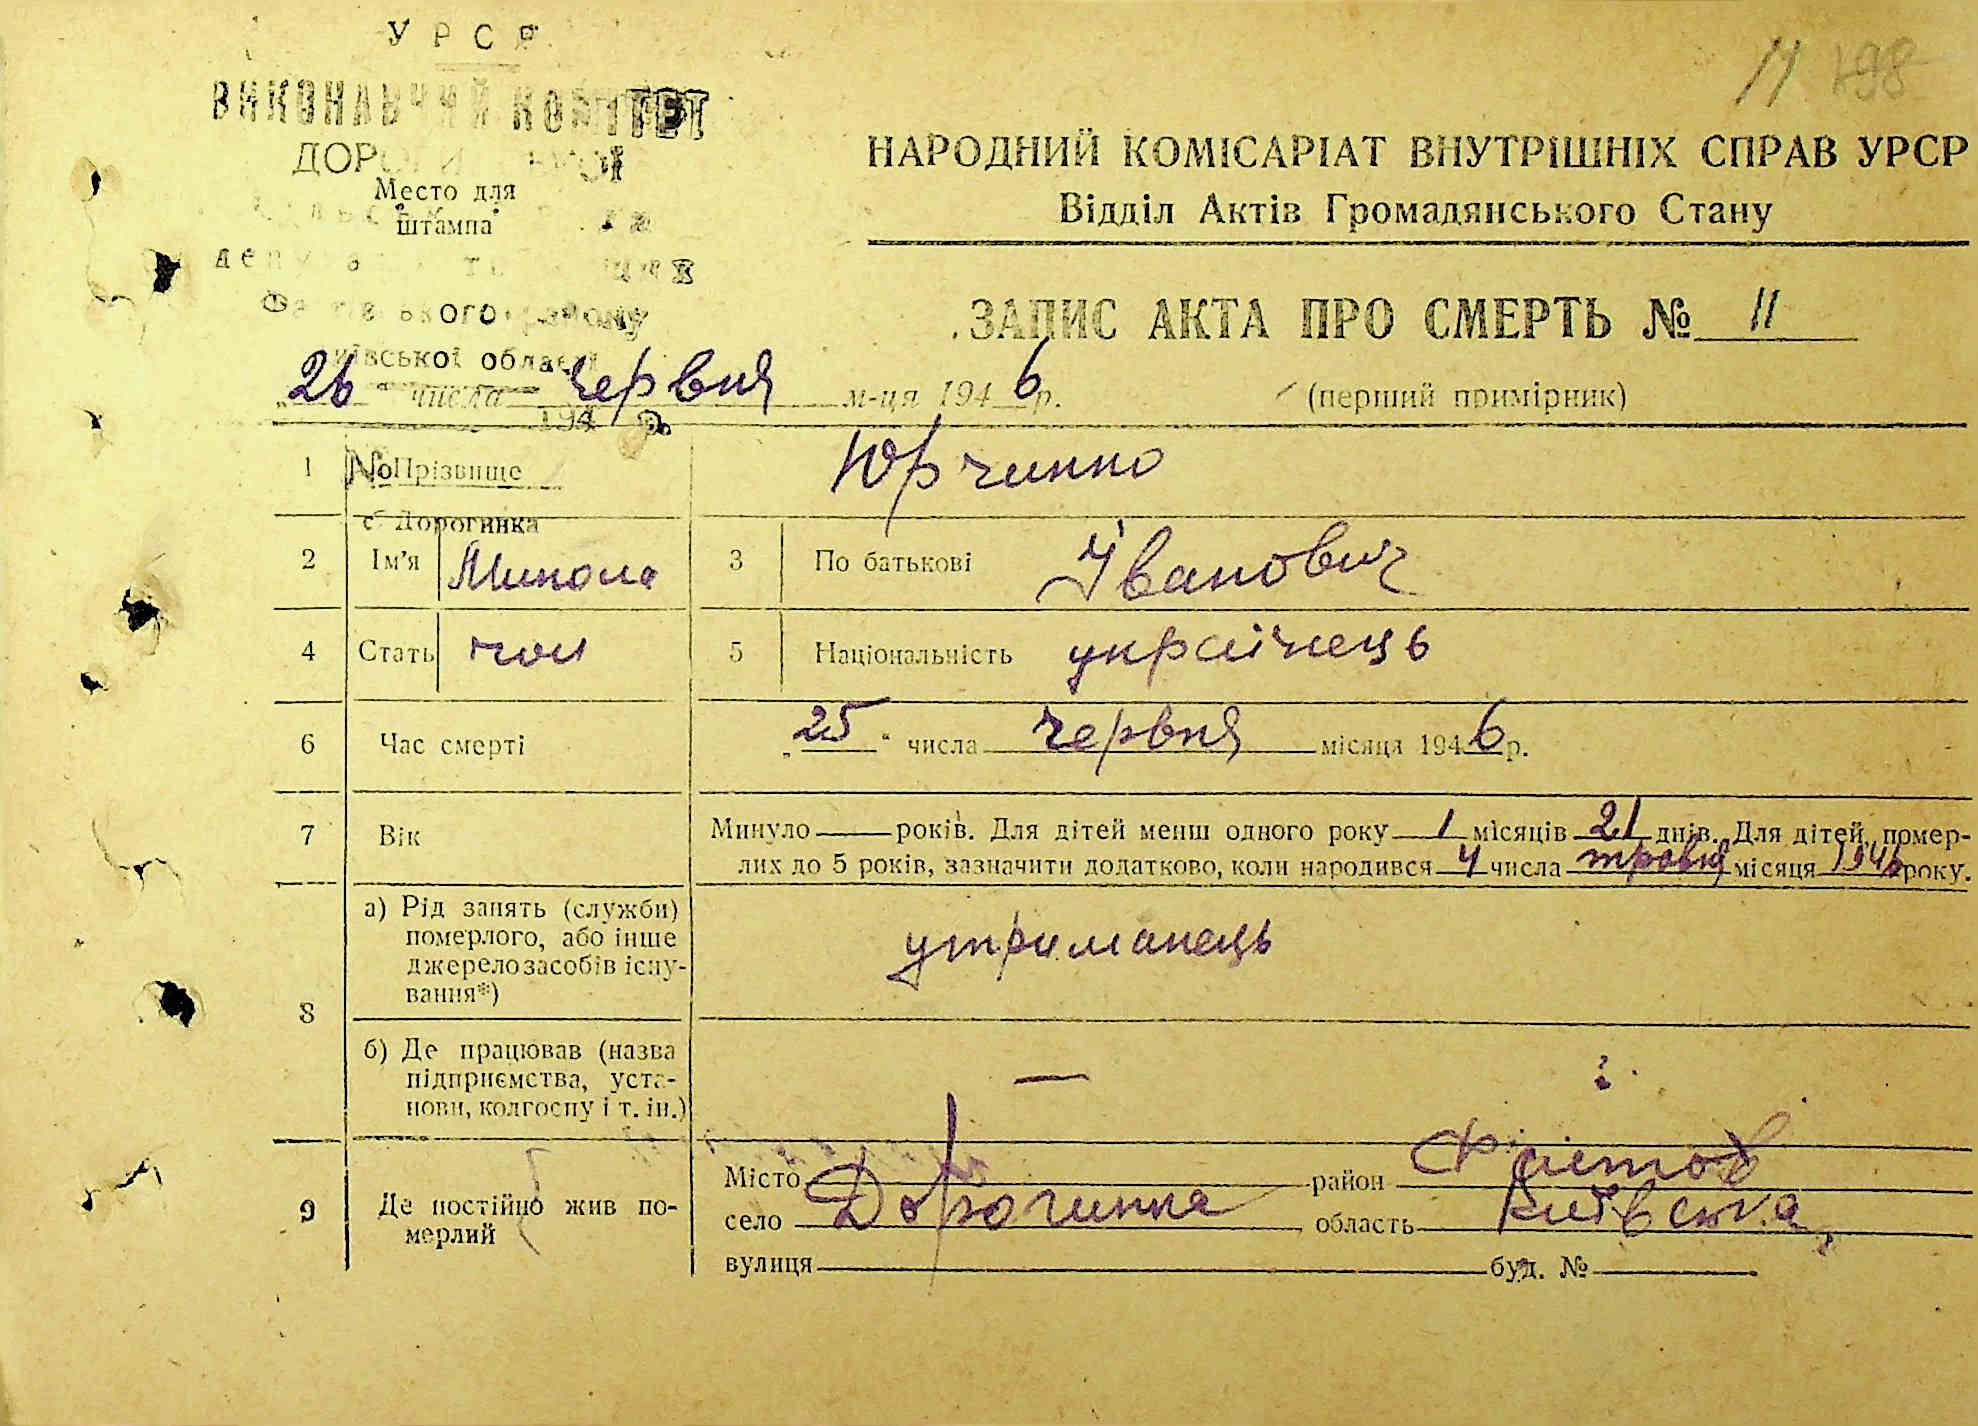 УРСР
ВИКОНАВЧИЙ КОМІТЕТ
Место для
штампа
київської області
194 р.
№
с. Дорогинка
11 198
НАРОДНИЙ КОМІСАРІАТ ВНУТРІШНІХ СПРАВ УРСР
Відділ Актів Громадянського Стану
ЗАПИС АКТА ПРО СМЕРТЬ № 11
„26“ числа червня м-ця 1946 р. (перший примірник)
1 Прізвище Юрчинко
2 Ім'я Микола 3 По батькові Іванович
4 Стать чол 5 Національність українець
6 Час смерті „25“ числа червня місяця 1946 р.
7 Вік Минуло — років. Для дітей менш одного року 1 місяців 21 днів. Для дітей, помер-
лих до 5 років, зазначити додатково, коли народився 4 числа травня місяця 1946 року.
8 а) Рід занять (служби)
померлого, або інше
джерело засобів існу-
вання*) утриманець
б) Де працював (назва
підприємства, уста-
нови, колгоспу і т. ін.) —
9 Де постійно жив по-
мерлий
Місто район Фастов
село Дорогинка область Київська
вулиця буд. №